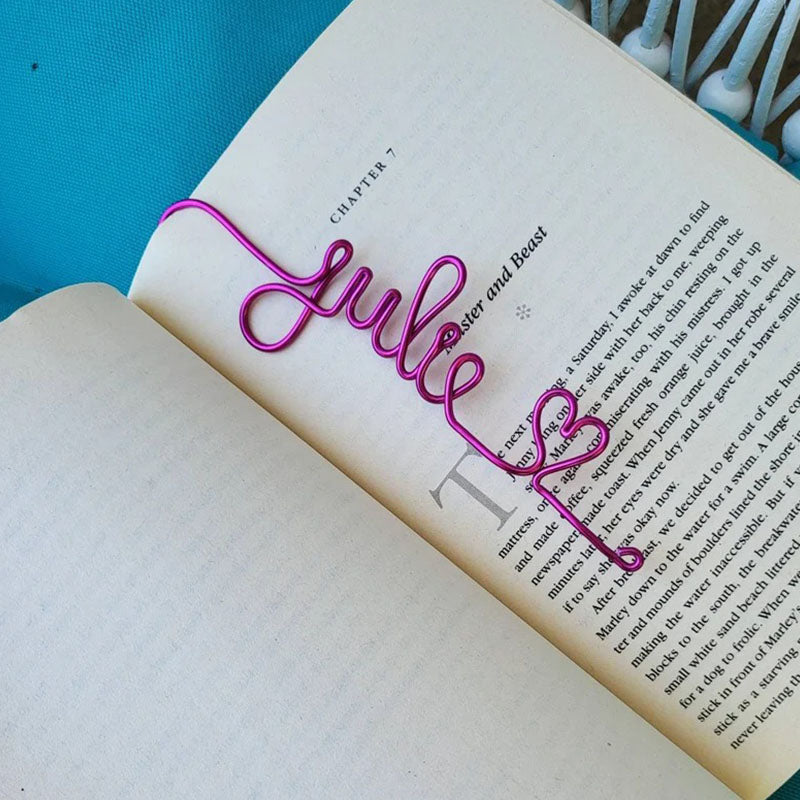 CHAPTER 7
julie
Master and Beast
T
e next morning, a Saturday, I awoke at dawn to find
Jenny lying on her side with her back to me, weeping
Marley was awake, too, his chin resting on the
mattress, once again commiserating with his mistress. I got up
and made coffee, squeezed fresh orange juice, brought in the
newspaper, made toast. When Jenny came out in her robe several
minutes later, her eyes were dry and she gave me a brave smile
if to say she was okay now.
After breakfast, we decided to get out of the hou
Marley down to the water for a swim. A large co
ter and mounds of boulders lined the shore in
making the water inaccessible. But if y
blocks to the south, the breakwate
small white sand beach littered
for a dog to frolic. When w
stick in front of Marley's
stick as a starving
never leaving th